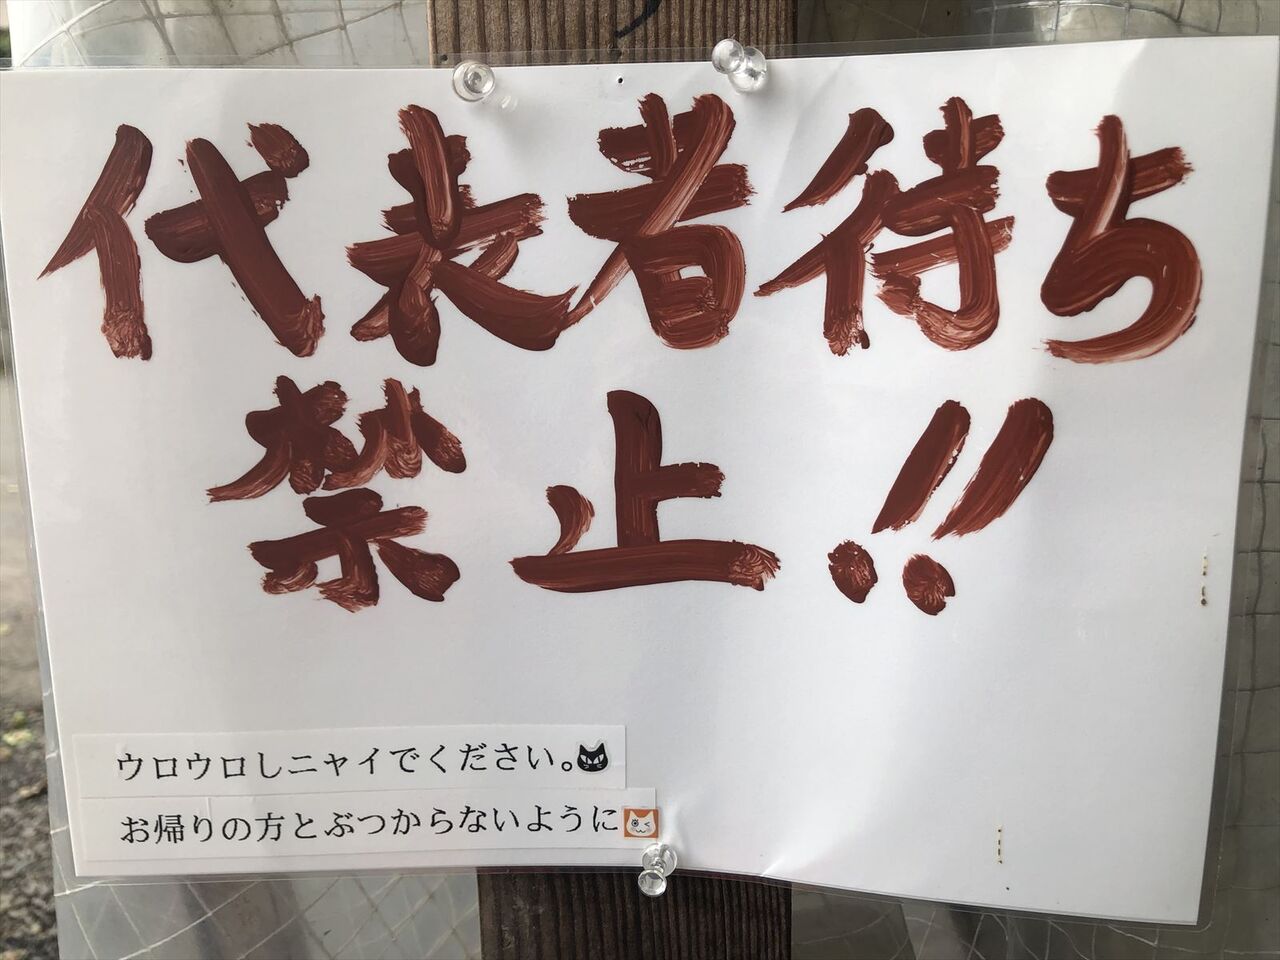 代表者待ち
禁止!!
ウロウロしニャイでください。
お帰りの方とぶつからないように